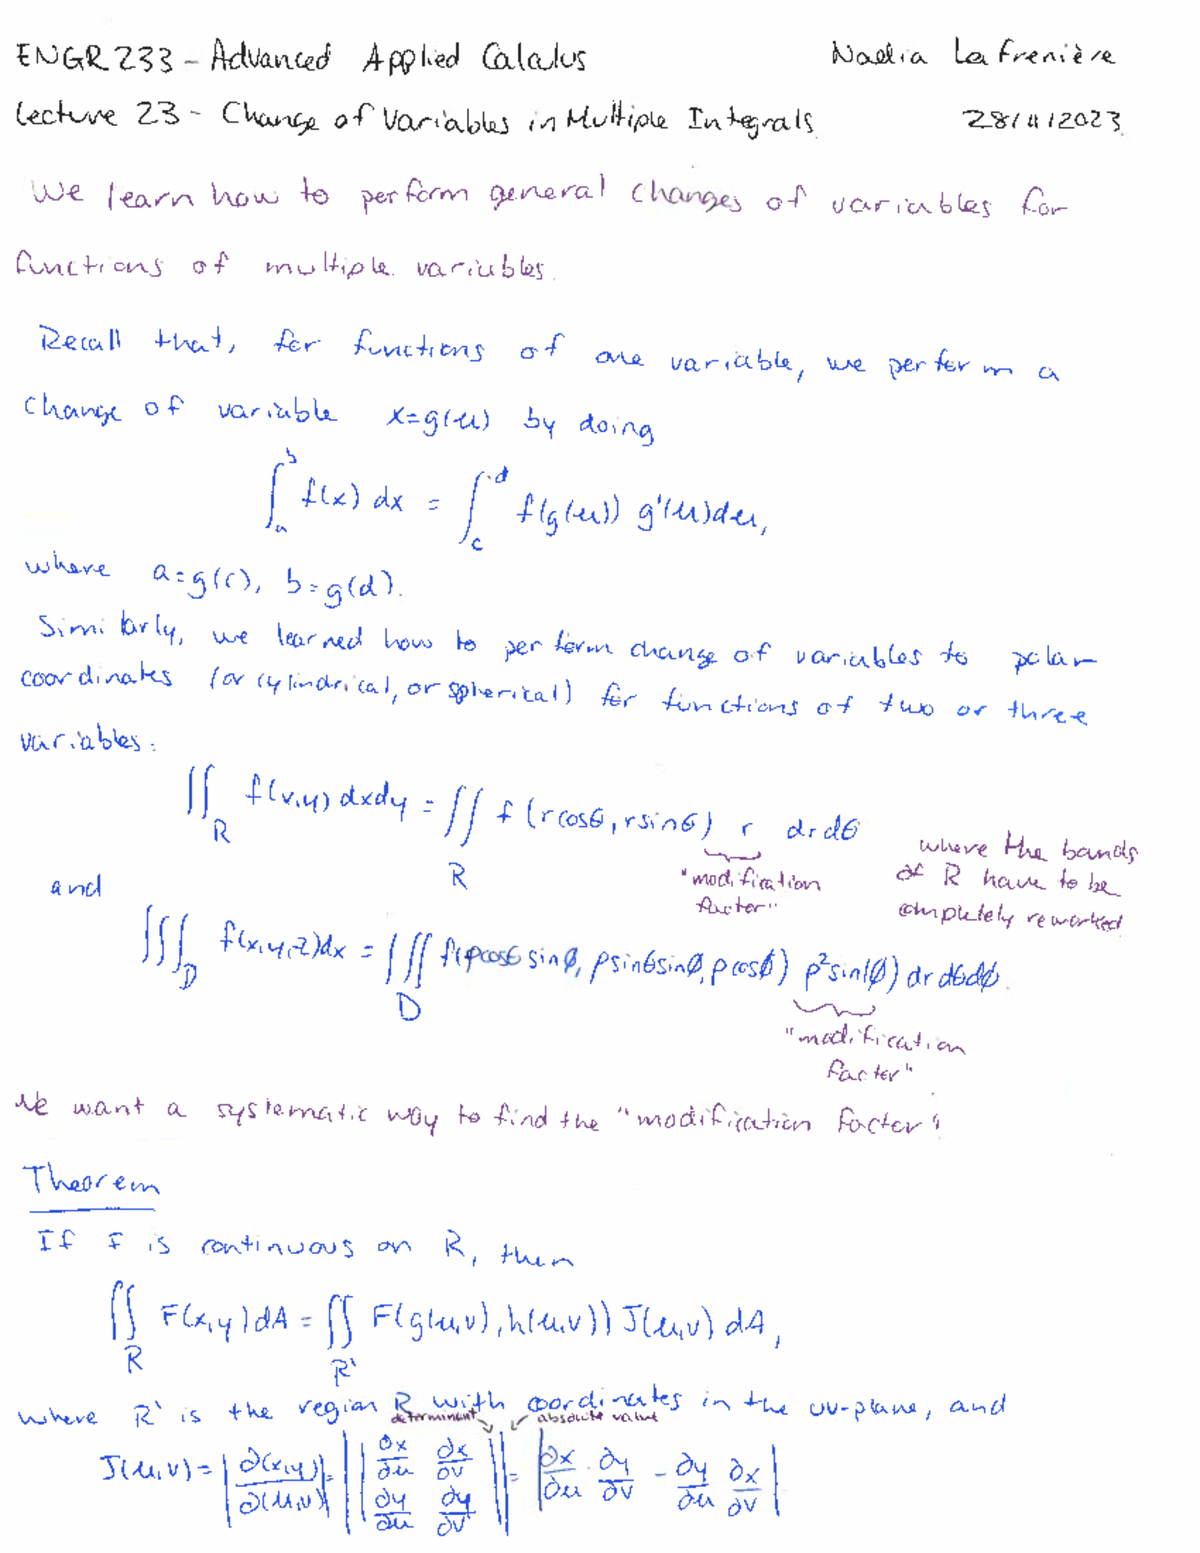 ENGR 233 - Advanced Applied Calculus
Nadia Lafrenière
Lecture 23 - Change of Variables in Multiple Integrals
28/11/2023
We learn how to perform general changes of variables for
functions of multiple variables.
Recall that, for functions of one variable, we perform a
change of variable x=g(u) by doing
∫_a^b f(x) dx = ∫_c^d f(g(u)) g'(u)du,
where a=g(c), b=g(d).
Similarly, we learned how to perform change of variables to polar
coordinates (or cylindrical, or spherical) for functions of two or three
variables:
∬_R f(x,y) dxdy = ∬_R f(rcosθ, rsinθ) r drdθ
"modification factor"
where the bands
of R have to be
completely reworked
and
∭_D f(x,y,z)dx = ∭_D f(ρcosθ sinϕ, ρsinθsinϕ, ρcosϕ) ρ²sin(ϕ) dr dθdϕ.
"modification
factor"
We want a systematic way to find the "modification factor"
Theorem
If F is continuous on R, then
∬_R F(x,y)dA = ∬_R' F(g(u,v), h(u,v)) J(u,v) dA,
where R' is the region R with coordinates in the uv-plane, and
determinant absolute value
J(u,v) = |∂(x,y)/∂(u,v)| = | |∂x/∂u ∂x/∂v ; ∂y/∂u ∂y/∂v| | = |∂x/∂u · ∂y/∂v - ∂y/∂u ∂x/∂v|